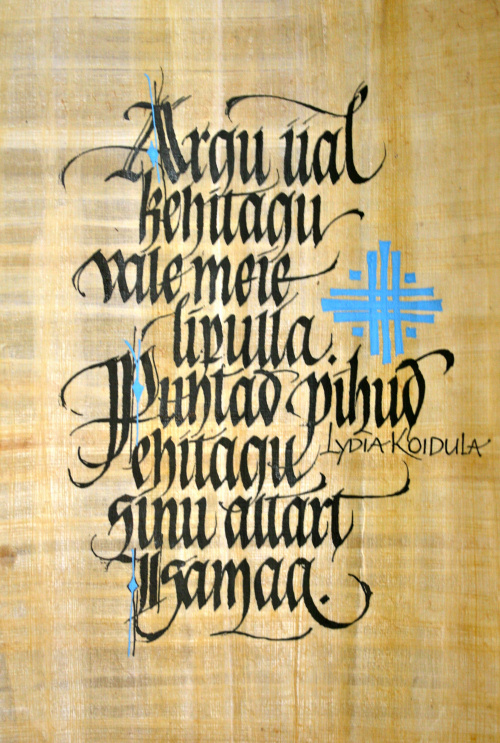 Argu iial
kehitagu
vale meie
lipulla.
Puhtad pihud
LYDIA KOIDULA
ehitagu
sinu altart
Isamaa.